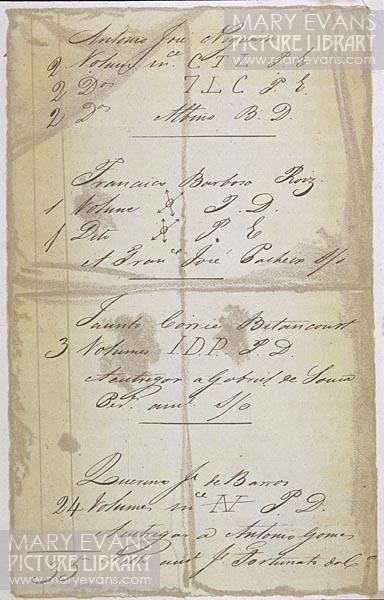 MARY EVANS
PICTURE LIBRARY
Antonio José
2 Volumes in ce C T C P. E.
2 Dos P. E.
2 Dos Albino B. D.
Francisco Barboso Roiz
1 Volume P. D.
1 Dito P. E
A Franco José Pacheco S/o
Jacinto Corrêe Betancourt
3 Volumes I.D.P. P. D.
Aentregar a Gabriel de Souza
S/o
Jr. de Barros
24 Volumes in ce N P. D.
Antregar a Antonio Gomes
Jr. Fortunato da Ca
MARY EVANS
PICTURE LIBRARY
www.maryevans.com